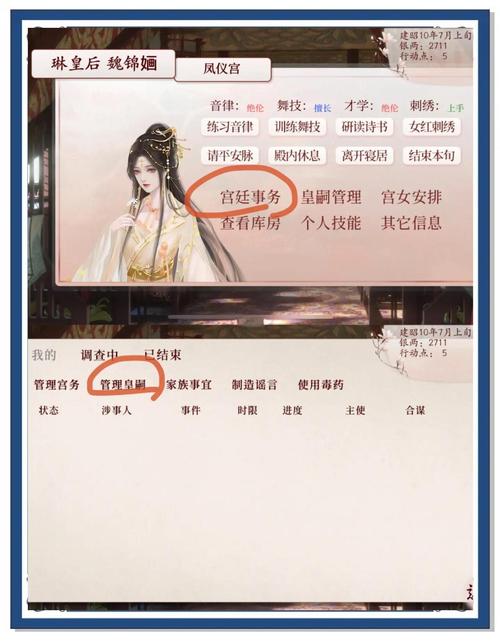 建昭10年7月上旬
银两：2711
行动点： 5
琳皇后 魏锦婳
凤仪宫
音律：绝伦 舞技：擅长 才学：绝伦 刺绣：上手
练习音律 训练舞技 研读诗书 女红刺绣
请平安脉 殿内休息 离开寝居 结束本旬
宫廷事务 皇嗣管理 宫女安排
查看库房 个人技能 其它信息
建昭10年7月上旬
银两：2711
行动点： 5
我的 调查中 已结束
管理宫务 管理皇嗣 家族事宜 制造谣言 使用毒药
状态 涉事人 事件 时限 进度 主使 合谋